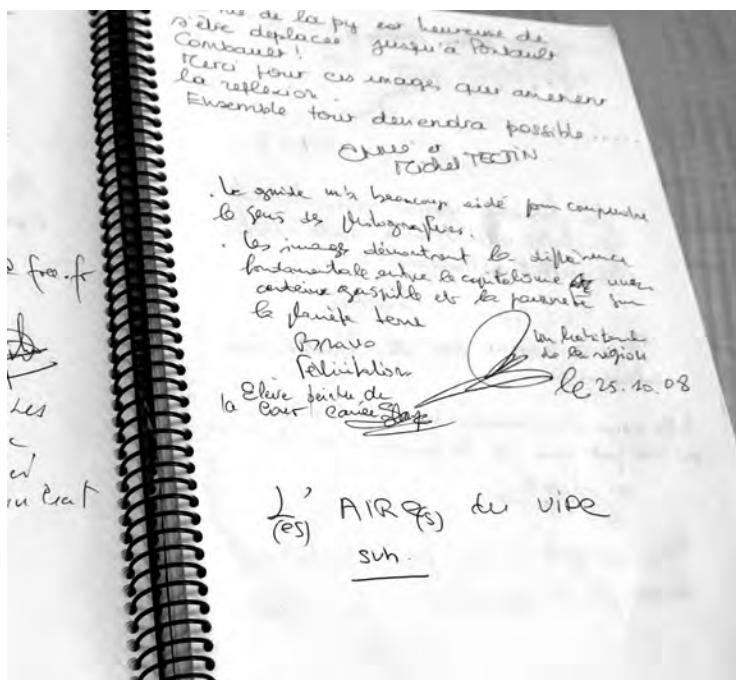 de la py est heureuse de
s'être déplacée jusqu'à Pontault
Combault!
Merci pour ces images qui amènent
la reflexion.
Ensemble tout deviendra possible.....
et
Michel TESTIN
. Le guide m'a beaucoup aidé pour comprendre
le sens des photographies.
. Les images démontrent la différence
fondamentale entre le capitalisme et une
certaine gaspille et la pauvreté sur
la planète terre
Bravo
Félicitations
un habitant
de la région
le 25.10.08
Elève peintre de
la Cour Carrée
@ free.fr
Les
L'(es) AIRE(s) du VIDE
svh.